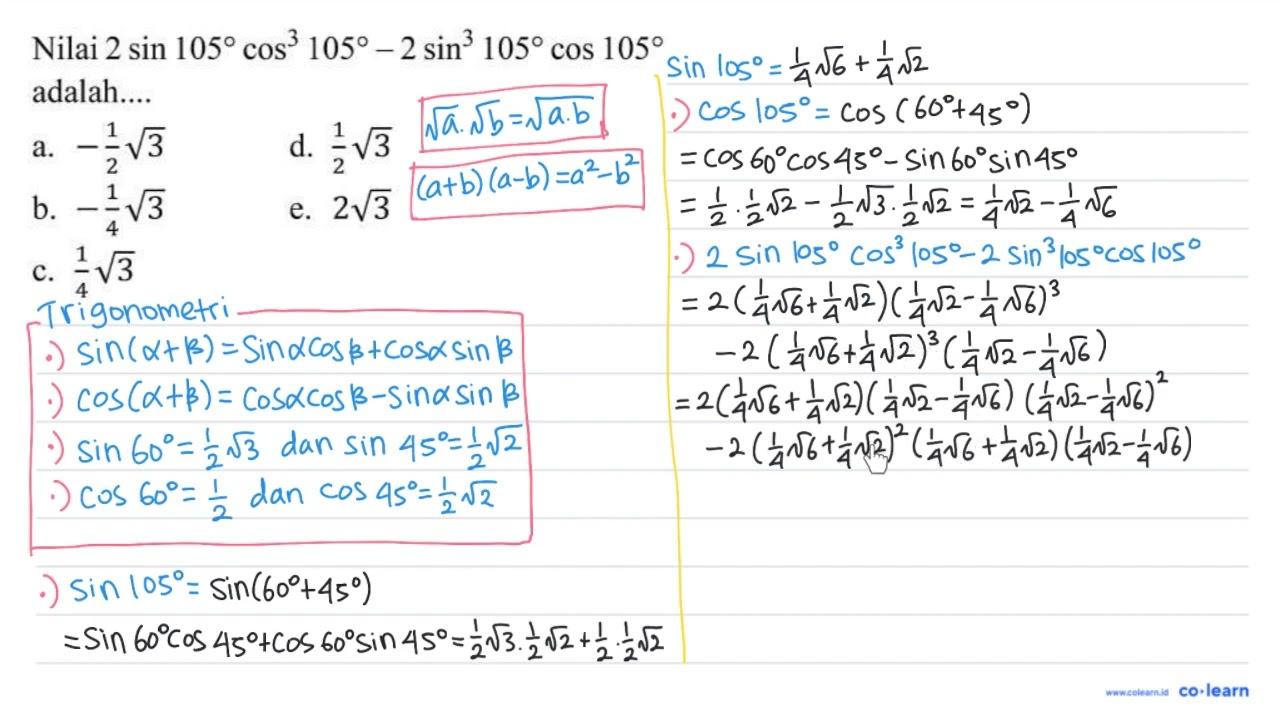 Nilai 2 sin 105° cos³ 105° – 2 sin³ 105° cos 105°
adalah....
a. -1/2√3
b. -1/4√3
c. 1/4√3
d. 1/2√3
e. 2√3
√a.√b=√a.b
(a+b)(a-b)=a²-b²
Trigonometri
·) sin(α+β)=sinαcosβ+cosαsinβ
·) cos(α+β)=cosαcosβ-sinαsinβ
·) sin 60°=1/2√3 dan sin 45°=1/2√2
·) cos 60°=1/2 dan cos 45°=1/2√2
·) sin 105°= sin(60°+45°)
=sin 60°cos 45°+cos 60°sin 45°=1/2√3.1/2√2+1/2.1/2√2
sin 105°=1/4√6+1/4√2
·) cos 105°= cos (60°+45°)
=cos 60°cos 45°-sin 60°sin 45°
=1/2.1/2√2-1/2√3.1/2√2=1/4√2-1/4√6
·) 2 sin 105° cos³ 105°-2 sin³ 105°cos 105°
=2(1/4√6+1/4√2)(1/4√2-1/4√6)³
-2(1/4√6+1/4√2)³(1/4√2-1/4√6)
=2(1/4√6+1/4√2)(1/4√2-1/4√6)(1/4√2-1/4√6)²
-2(1/4√6+1/4√2)²(1/4√6+1/4√2)(1/4√2-1/4√6)
www.colearn.id co·learn